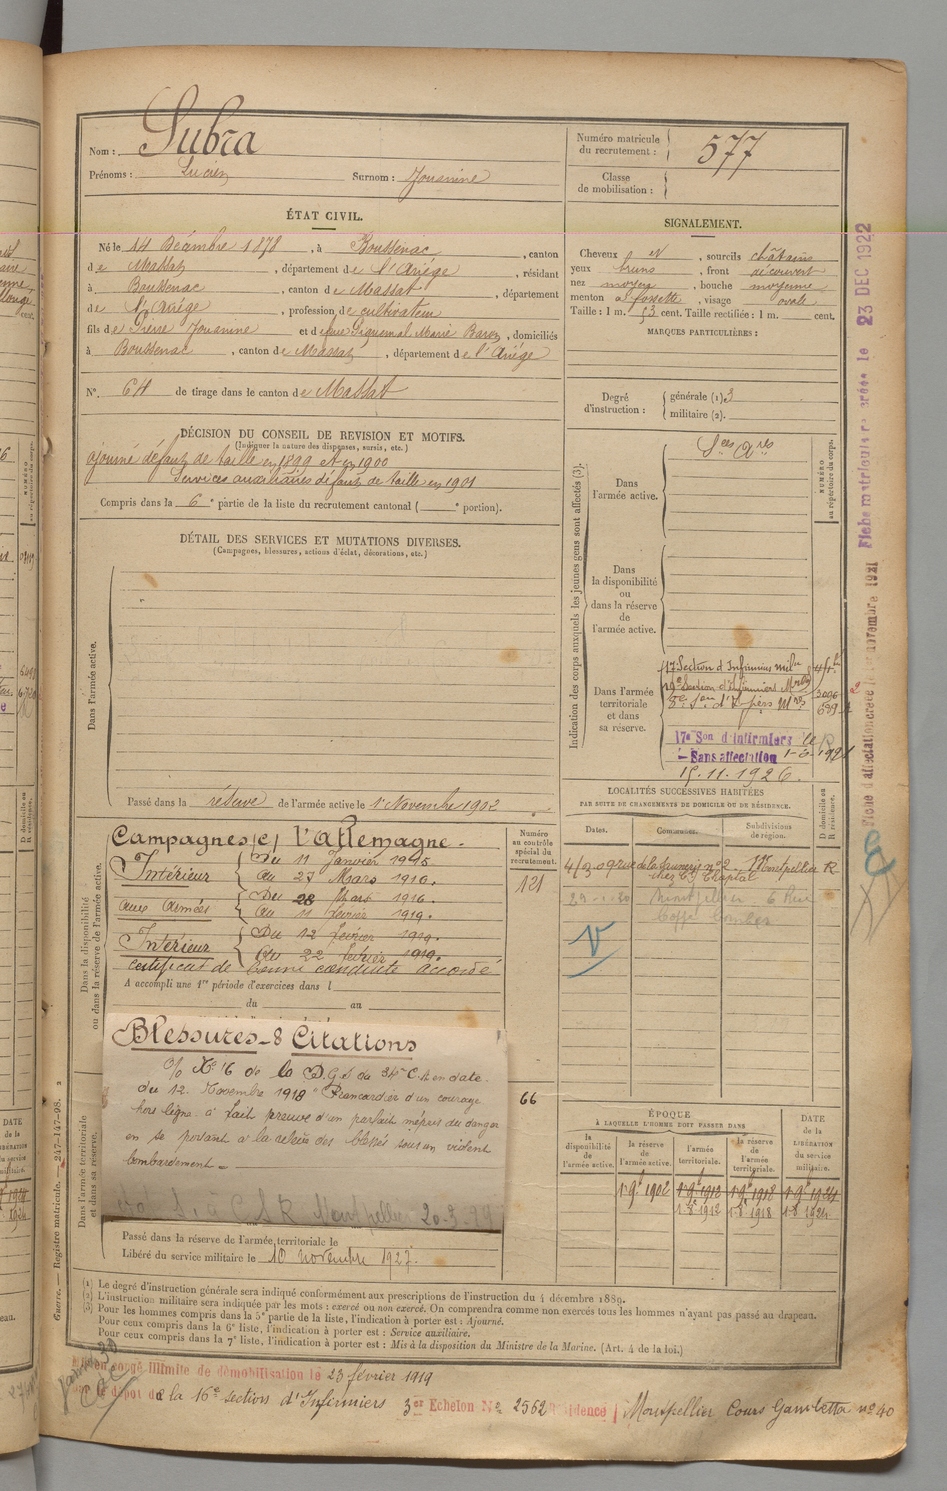 Nom : Subra
Prénoms : Lucien Surnom : Jouanine
Numéro matricule du recrutement : 577
Classe de mobilisation :
ÉTAT CIVIL.
Né le 14 Décembre 1878, à Boussenac, canton
de Massat, département de l'Ariège, résidant
à Boussenac, canton de Massat, département
de l'Ariège, profession de cultivateur
fils de Pierre Jouanine et de feue Piquemal Marie Baron, domiciliés
à Boussenac, canton de Massat, département de l'Ariège
N°. 64 de tirage dans le canton de Massat
SIGNALEMENT.
Cheveux et, sourcils châtains
yeux bruns, front découvert
nez moyen, bouche moyenne
menton à fossette, visage ovale
Taille : 1 m. 53 cent. Taille rectifiée : 1 m. cent.
MARQUES PARTICULIÈRES :
Degré d'instruction : générale (1). 3
militaire (2).
DÉCISION DU CONSEIL DE REVISION ET MOTIFS.
(Indiquer la nature des dispenses, sursis, etc.)
ajourné défaut de taille en 1899 et en 1900
Services auxiliaires défaut de taille en 1901
Compris dans la 6e partie de la liste du recrutement cantonal ( e portion).
DÉTAIL DES SERVICES ET MUTATIONS DIVERSES.
(Campagnes, blessures, actions d'éclat, décorations, etc.)
Dans l'armée active.
Passé dans la réserve de l'armée active le 1er Novembre 1902
Indication des corps auxquels les jeunes gens sont affectés (3).
NUMÉRO au répertoire du corps.
Dans l'armée active.
Sces Ares
Dans la disponibilité ou dans la réserve de l'armée active.
Dans l'armée territoriale et dans sa réserve.
17 Section d'Infirmiers
17e Son d'Infirmiers
Sans affectation
15.11.1926.
Fiche matricule créée le 23 DEC 1922
LOCALITÉS SUCCESSIVES HABITÉES
PAR SUITE DE CHANGEMENTS DE DOMICILE OU DE RÉSIDENCE.
Dates. Communes. Subdivisions de région. D domicile ou R résidence.
4/3.09 rue de la Saunerie n° 2 Montpellier R
chez Chaptal
Montpellier 6 Rue
Dans la disponibilité ou dans la réserve de l'armée active.
Numéro au contrôle spécial du recrutement.
121
Campagnes c/ l'Allemagne.
Intérieur Du 11 Janvier 1915.
au 27 Mars 1916.
aux Armées Du 28 Mars 1916.
au 11 février 1919.
Intérieur Du 12 février 1919.
au 22 février 1919.
certificat de bonne conduite accordé
A accompli une 1re période d'exercices dans l
du au
Blessures & Citations
O/ N° 16 de la D.G.S du 34e C.A en date
du 12 Novembre 1918 "Brancardier d'un courage
hors ligne a fait preuve d'un parfait mépris du danger
en se portant à la relève des blessés sous un violent
bombardement
C S R Montpellier 20-3-19
66
Dans l'armée territoriale et dans sa réserve.
Passé dans la réserve de l'armée territoriale le
Libéré du service militaire le 10 novembre 1927.
ÉPOQUE
À LAQUELLE L'HOMME DOIT PASSER DANS
la disponibilité de l'armée active. la réserve de l'armée active. l'armée territoriale. la réserve de l'armée territoriale. DATE de la LIBÉRATION du service militaire.
1 9e 1902 1 9e 1912 1 9e 1918 1 9e 1924
1 8e 1912 1 8e 1918 1 8e 1924
(1) Le degré d'instruction générale sera indiqué conformément aux prescriptions de l'instruction du 4 décembre 1889.
(2) L'instruction militaire sera indiquée par les mots : exercé ou non exercé. On comprendra comme non exercés tous les hommes n'ayant pas passé au drapeau.
(3) Pour les hommes compris dans la 5e partie de la liste, l'indication à porter est : Ajourné.
Pour ceux compris dans la 6e liste, l'indication à porter est : Service auxiliaire.
Pour ceux compris dans la 7e liste, l'indication à porter est : Mis à la disposition du Ministre de la Marine. (Art. 4 de la loi.)
Guerre. — Registre matricule. — 247-147-98.
Mis en congé illimité de démobilisation le 23 février 1919
dépôt de la 16e section d'Infirmiers 3er Echelon N° 2562 Résidence Montpellier Cours Gambetta n° 40